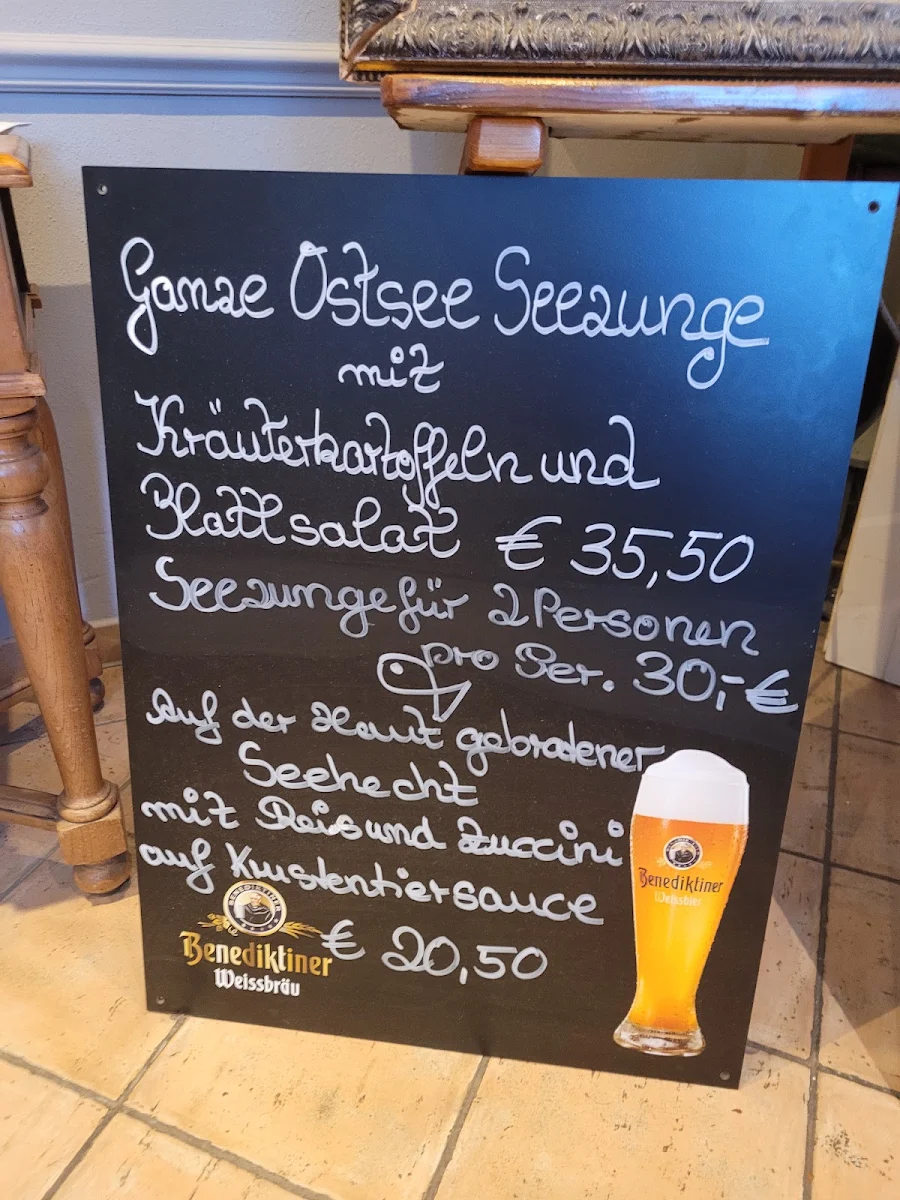 Ganze Ostsee Seezunge
mit
Kräuterkartoffeln und
Blattsalat € 35,50
Seezunge für 2 Personen
pro Per. 30,-€
Auf der Haut gebratener
Seehecht
mit Reis und Zuccini
auf Krustentiersauce
€ 20,50
BENEDIKTINER
Benediktiner
Weissbräu
Benediktiner
Weissbier